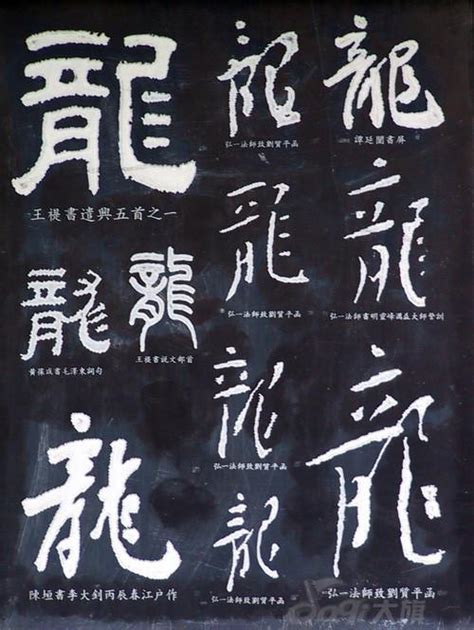 龍
王禔書遣興五首之一
龍
弘一法師致劉質平函
龍
譚延闓書屏
龍
弘一法師致劉質平函
龍
弘一法師書明靈峰蕅益大師警訓
龍
黄葆戉書毛澤東詞句
龍
王禔書説文部首
龍
弘一法師致劉質平函
龍
陳垣書李大釗丙辰春江户作
龍
弘一法師致劉質平函
龍
弘一法師致劉質平函
大旗